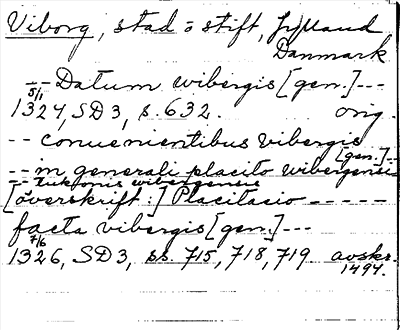 Viborg, stad o stift, Jylland
Danmark
--Datum wibergis [gen.]---
5/1
1324, SD3, s. 632. orig.
-- conuenientibus vibergis
[gen.]--
-- in generali placito wibergensi
-- tukonis wibergensis
[överskrift:] Placitacio -----
facta vibergis [gen.]---
7/6
1326, SD3, ss. 715, 718, 719 avskr.
1494.